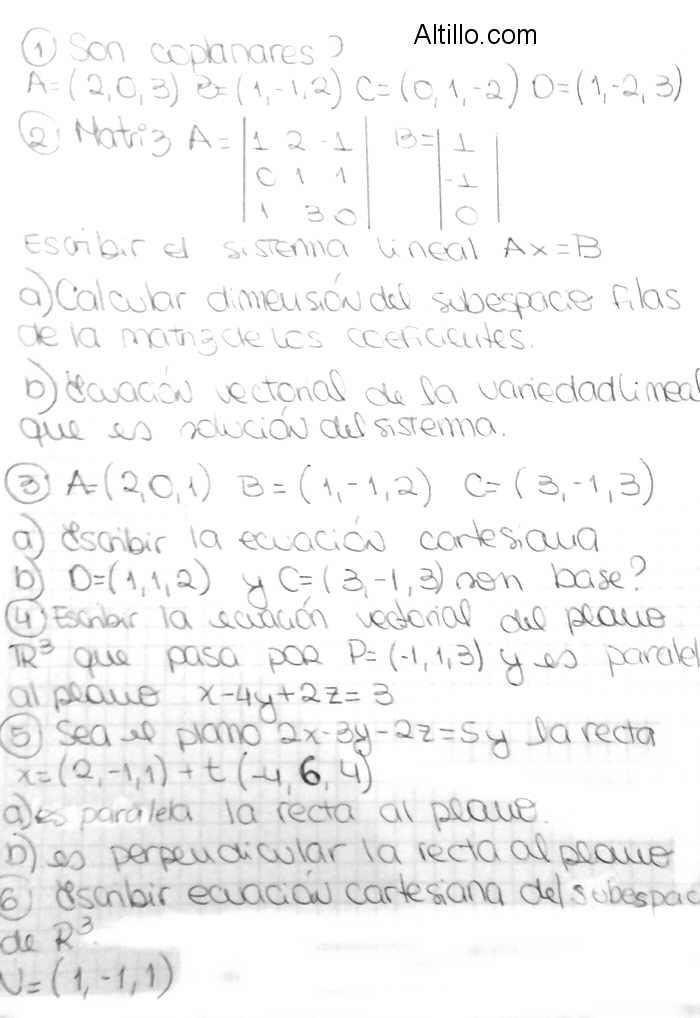 Altillo.com
① Son coplanares?
A=(2,0,3) B=(1,-1,2) C=(0,1,-2) D=(1,-2,3)
② Matriz A= |1 2 -1| B= |1|
|0 1 1| |-1|
|1 3 0| |0|
Escribir el sistema lineal Ax=B
a) Calcular dimensión del subespacio filas
de la matriz de los coeficientes.
b) Ecuación vectorial de la variedad lineal
que es solución del sistema.
③ A=(2,0,1) B=(1,-1,2) C=(3,-1,3)
a) Escribir la ecuación cartesiana
b) D=(1,1,2) y C=(3,-1,3) son base?
④ Escribir la ecuación vectorial del plano
R³ que pasa por P=(-1,1,3) y es paralel
al plano x-4y+2z=3
⑤ Sea el plano 2x-3y-2z=5 y la recta
x=(2,-1,1)+t(-4,6,4)
a) es paralela la recta al plano.
b) es perpendicular la recta al plano
⑥ Escribir ecuación cartesiana del subespac
de R³
U=(1,-1,1)